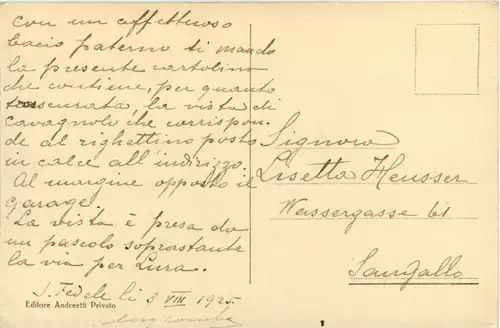 con un affettuoso
bacio paterno ti mando
la presente cartolina
che contiene, per quanto
trascurata, la vista di
Cavagnolo che corrispon-
de al righettino posto
in calce all'indirizzo.
Al margine opposto il
garage.
La vista è presa da
un pascolo soprastante
la via per Lura.
S. Fedele li 3 VIII 1925.
Editore Andreetti Privato
Signora
Lisetta Heusser
Wassergasse 61
Sangallo